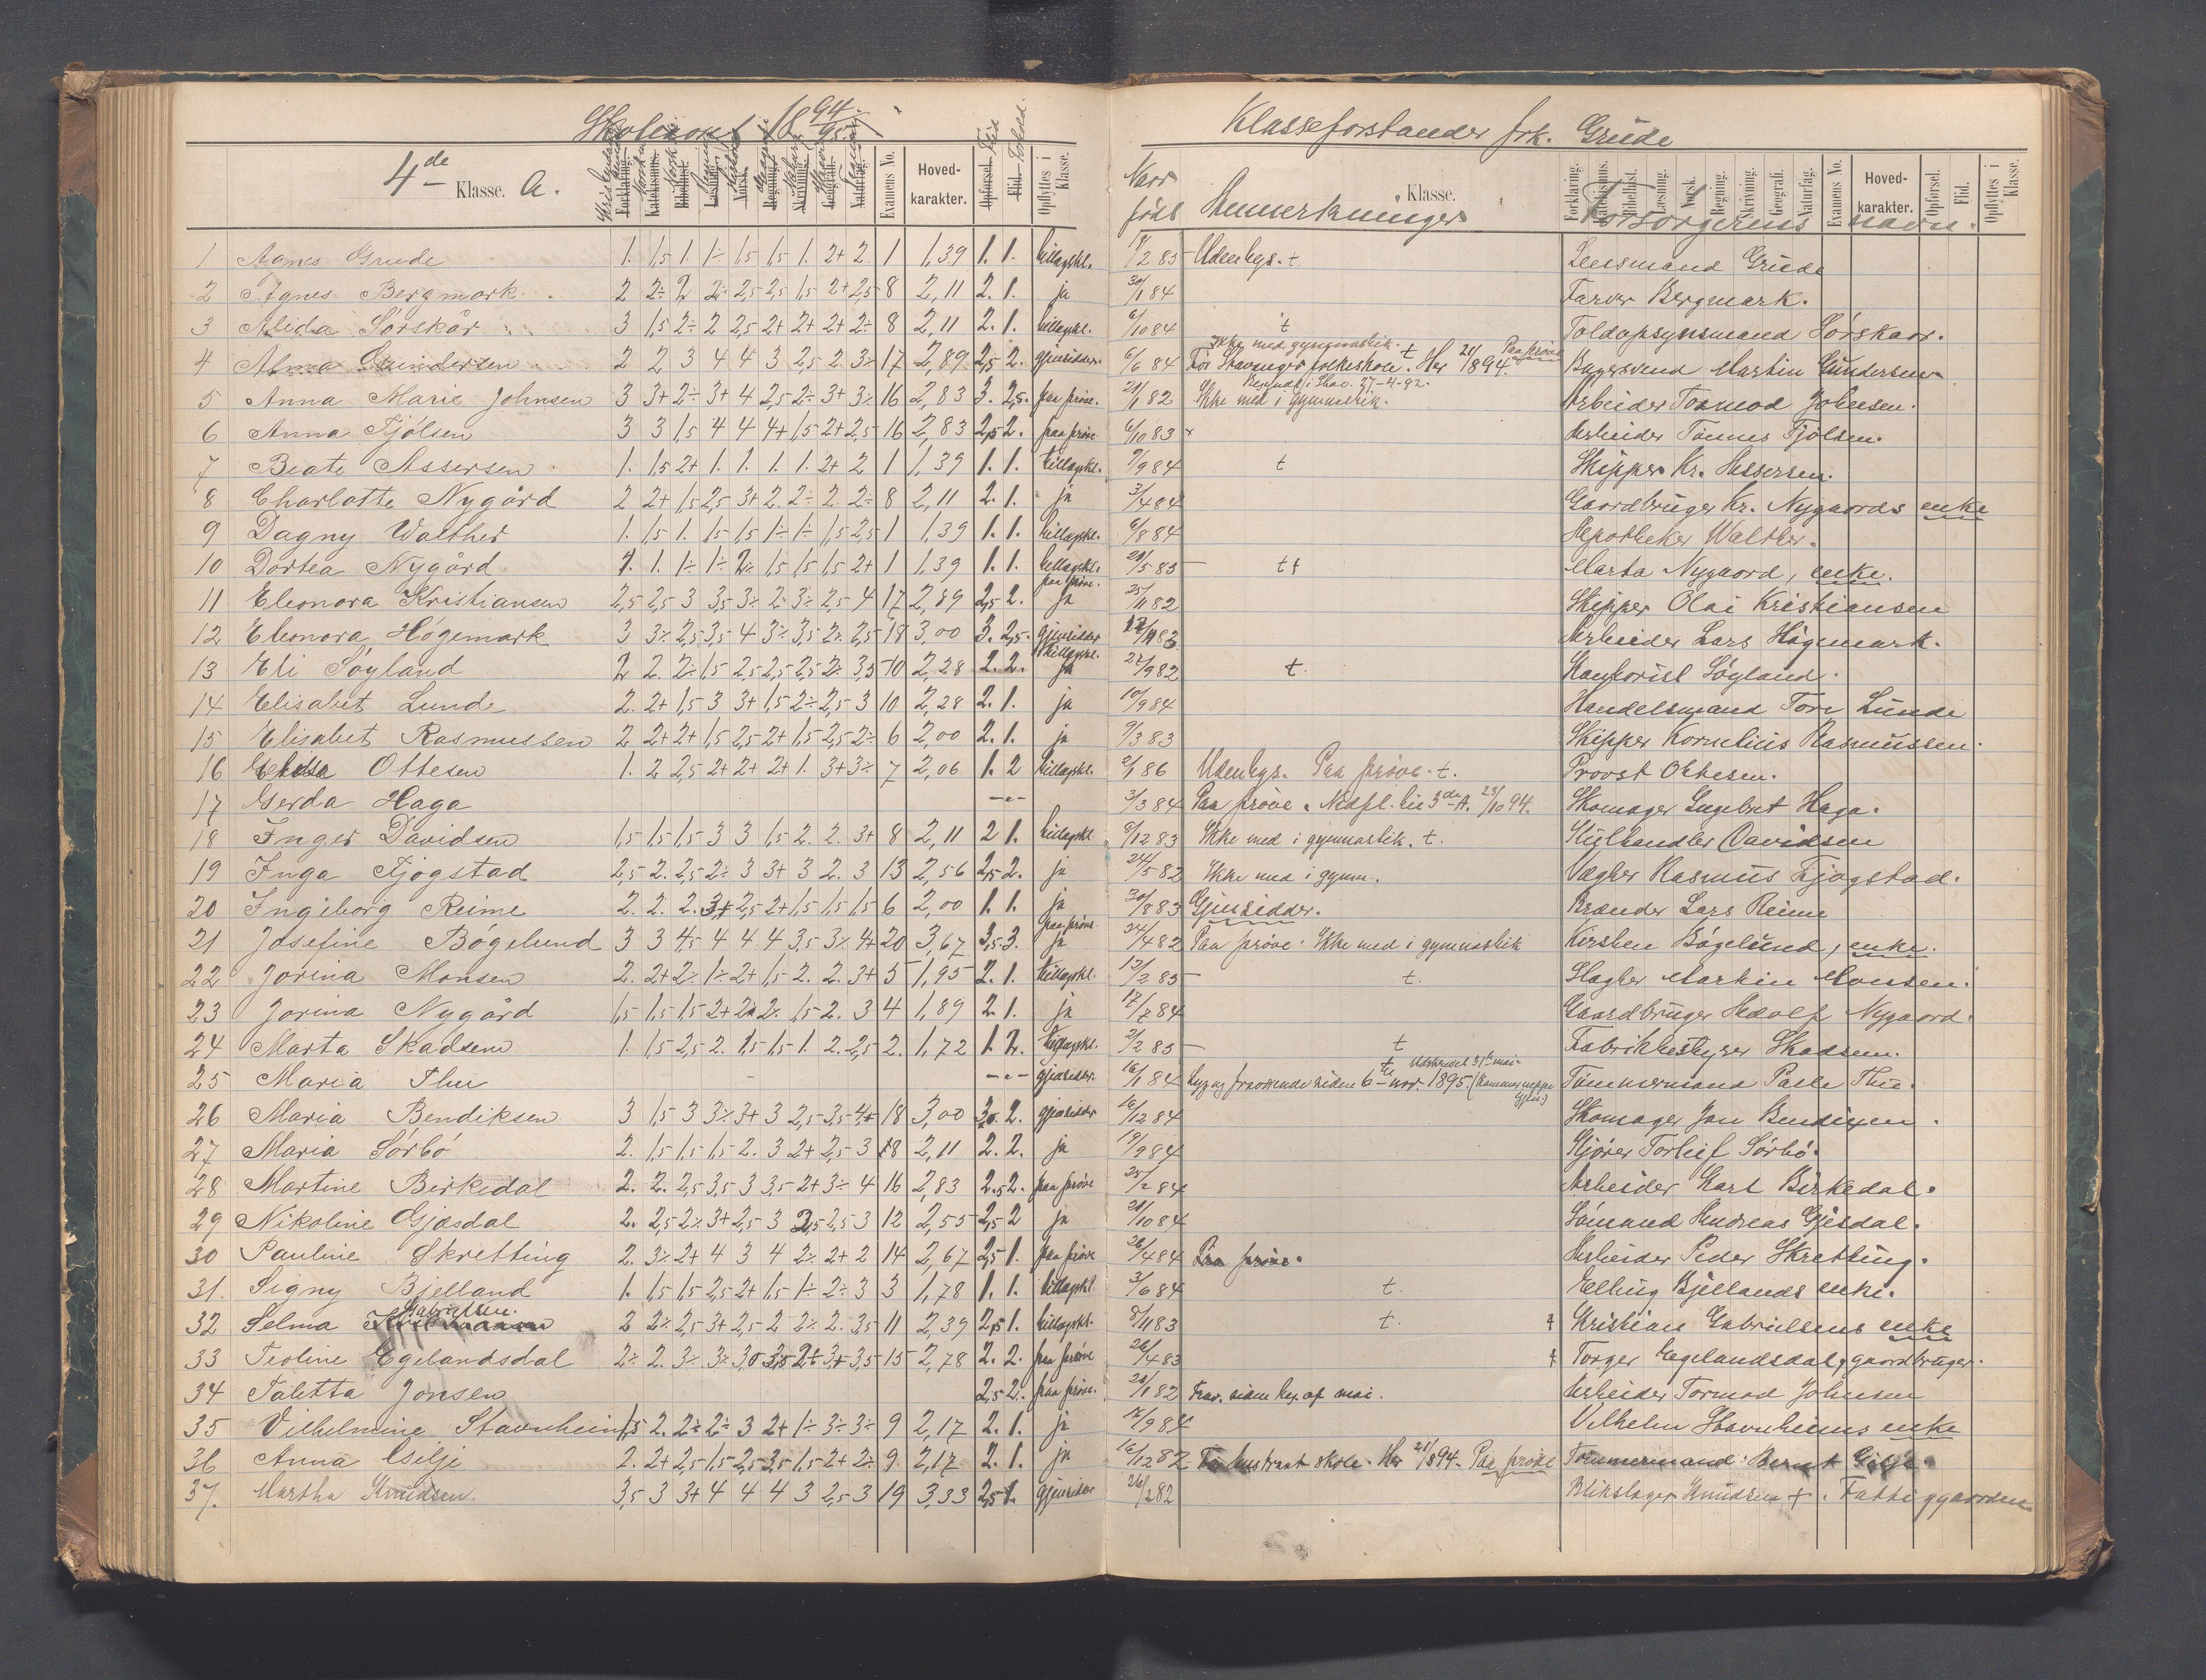 Skoleaaret 18 94/95.
Klasseforstander frk. Grude
4de Klasse. a.
Examens No. Hoved-karakter. Opførsel. Flid. Opflyttes i Klasse.
Naar født Anmerkninger Klasse.
Forklaring. Katekismus. Bibelhist. Læsning. Norsk. Regning. Skrivning. Geografi. Naturfag. Examens No. Hoved-karakter. Opførsel. Flid. Opflyttes i Klasse.
Forsørgerens navn.
1 Agnes Grude 1. 1,5 1. 1÷ 1,5 1,5 1. 2+ 2 1 1,39 1. 1. tillægskl. Udenbys. t. Lensmand Grude
2 Agnes Bergmark 2 2÷ 2 2÷ 2,5 2,5 1,5 2+ 2,5 8 2,11 2. 1. ja 30/1 84 Farver Bergmark.
3 Alida Sørskår 3 1,5 2÷ 2 2,5 2+ 2+ 2+ 2÷ 8 2,11 2. 1. tillægskl. 6/10 84 t Toldopsynsmand Sørskaar.
4 Alma Gundersen 2 2 3 4 4 3 2,5 2. 3% 17 2,89 2,5 2. gjensidder. 6/6 84 Ikke med gymnastik. t Før Stavanger folkeskole. Her 1894. Paa prøve Martin Gundersen
5 Anna Marie Johnsen 3 3+ 2÷ 3+ 4 2,5 2÷ 3+ 3% 16 2,83 3. 2,5. paa prøve. 21/1 82 Begyndt i Stav. 27-4-92. Ikke med i gymnastik. Arbeider Tormod Johnsen.
6 Anna Tjølsen 3 3 1,5 4 4 4+ 1,5 2+ 2,5 16 2,83 2,5 2. paa prøve 6/10 83 Arbeider Tønnes Tjølsen.
7 Beate Assersen 1. 1,5 2+ 1. 1. 1. 1. 2+ 2 1 1,39 1. 1. tillægskl. 7/9 84 t Skipper Kr. Assersen.
8 Charlotte Nygård 2 2+ 1,5 2,5 3+ 2. 2÷ 2. 2÷ 8 2,11 2. 1. ja 3/4 84 Gaardbruger Kr. Nygaards enke
9 Dagny Walther 1. 1,5 1. 1,5 1,5 1÷ 1÷ 1,5 2,5 1 1,39 1. 1. tillægskl. 6/8 84 Apotheker Walther.
10 Dortea Nygård 1. 1. 1÷ 1÷ 2% 1,5 1,5 1,5 2+ 1 1,39 1. 1. tillægskl. 20/5 83 tt Marta Nygaard, enke.
11 Eleonora Kristiansen 2,5 2,5 3 3,5 3% 2 3% 2,5 4 17 2,89 2,5 2. paa prøve. ja 25/11 82 Skipper Olai Kristiansen
12 Eleonora Høgemark 3 3% 2,5 3,5 4 3% 3,5 2% 2,5 18 3,00 3. 2,5. gjensidder Arbeider Lars Høgemark.
13 Eli Søyland 2 2. 2÷ 1,5 2,5 2,5 2,5 2% 3,5 10 2,28 2. 2. tillægskl. ja 27/9 82 t. Kontorist Søyland.
14 Elisabet Lunde 2. 2+ 1,5 3 3+ 1,5 2÷ 2,5 3 10 2,28 2. 1. ja 10/9 84 Handelsmand Tore Lunde
15 Elisabet Rasmussen 2 2+ 2+ 1,5 2,5 2+ 1,5 2,5 2÷ 6 2,00 2. 1. ja 9/3 83 Skipper Kornelius Rasmussen.
16 Ottesen 1. 2 2,5 2+ 2+ 2+ 1. 3+ 3÷ 7 2,06 1. 2 tillægskl. 2/1 86 Udenbys. Paa prøve. t. Provst Ottesen.
17 Gerda Haga 3/3 84 Paa prøve. Nedfl. til 3de A. 23/10 94. Skomager Ingebret Haga.
18 Inger Davidsen 1,5 1,5 1,5 3 3 1,5 2. 2. 3+ 8 2,11 2 1. tillægskl. 8/12 83 Ikke med i gymnastik. t. Kulhandler Davidsen
19 Inga Fjogstad 2,5 2. 2,5 2÷ 3 3+ 3 2. 3 13 2,56 2,5 2. ja 24/5 82 Ikke med i gymn. Vægter Rasmus Fjogstad.
20 Ingeborg Reime 2. 2. 2. 3+ 2,5 2+ 1,5 1,5 1,5 6 2,00 1. 1. ja 30/8 83 Gjensidder. Brænder Lars Reime
21 Josefine Bøgelund 3 3 4,5 4 4. 4 3,5 3% 4+ 20 3,67 3,5 3. paa prøve ja 24/4 82 Paa prøve. Ikke med i gymnastik Kirsten Bøgelund, enke.
22 Jorina Monsen 2. 2+ 2% 1% 2+ 1,5 2. 2. 3+ 5 1,95 2. 1. tillægskl. 13/2 85 t. Slagter Martin Monsen.
23 Jorina Nygård 1,5 1,5 1,5 2+ 2% 2% 1,5 2. 3 4 1,89 2 1. ja 17/7 84 Gaardbruger Adolf Nygaard.
24 Marta Skadsem 1. 1,5 2,5 2. 1,5 1,5 1. 2. 2,5 2. 1,72 1. 2. tillægskl. 2/2 85 t Fabrikbestyrer Skadsem.
25 Maria Thu gjensidder. 16/1 84 Syg og fraværende siden 6te nov. 1895. Udskrevet 31te mai (Kommer neppe gjen) Tømmermand Palle Thu.
26 Maria Bendiksen 3 1,5 3 3% 3+ 3 2,5 3,5 4+ 18 3,00 3,0. 2. gjensidder 16/12 84 Skomager Jon Bendixen.
27 Maria Sørbø 2. 1,5 1,5 1,5 2. 3 2+ 2,5 3 8 2,11 2. 2. ja 19/9 84 Kjører Torleif Sørbø.
28 Martine Birkedal 2. 2. 2,5 3,5 3 3,5 2+ 3÷ 4 16 2,83 2,5 2. paa prøve 25/2 84 Arbeider Karl Birkedal.
29 Nikoline Gjæsdal 2. 2,5 2% 3+ 2,5 3 2,5 2,5 3 12 2,55 2,5 2 ja 21/10 84 Sømand Andreas Gjesdal.
30 Pauline Skretting 2. 3% 2+ 4 3 4 2% 2+ 2 14 2,67 2,5 1. paa prøve 26/4 84 Paa prøve. Arbeider Peder Skretting.
31. Signy Bjelland 1. 1,5 1,5 2,5 2+ 1,5 1÷ 2÷ 3 3 1,78 1. 1. tillægskl. 3/6 84 t. Elling Bjellands enke.
32 Selma Gabrielsen. 2 2% 2,5 3+ 2,5 2 2% 2. 3,5 11 2,39 2,5 1. tillægskl. 8/11 83 t. Kristian Gabrielsens enke
33 Teoline Egelandsdal 2% 2. 3% 3% 3,0 3,5 2+ 3+ 3,5 15 2,78 2. 2. paa prøve 26/4 83 Torger Egelandsdal, gaardbruger.
34 Tabitta Jonsen 2,5 2. paa prøve. 21/1 82 Frav. siden beg. af mai. Arbeider Tormod Johnsen
35 Vilhelmine Stavnheim 1,5 2. 2÷ 2÷ 3 2+ 1÷ 3÷ 3÷ 9 2,17 2. 1. ja 12/9 84 Vilhelm Stavnheims enke
36 Anna Gilje 2. 2+ 2,5 1,5 2,5 3,5 1,5 2+ 2÷ 9 2,17 2. 1. ja 16/12 82 skole. Her 1894. Paa prøve Tømmermand Bernt Gilje.
37. Martha Knudsen. 3,5 3 3+ 4 4 4 3 2,5 3 19 3,33 2,5 1. gjensidder 26/2 82 Blikslager Knudsen +. Fattiggaarden